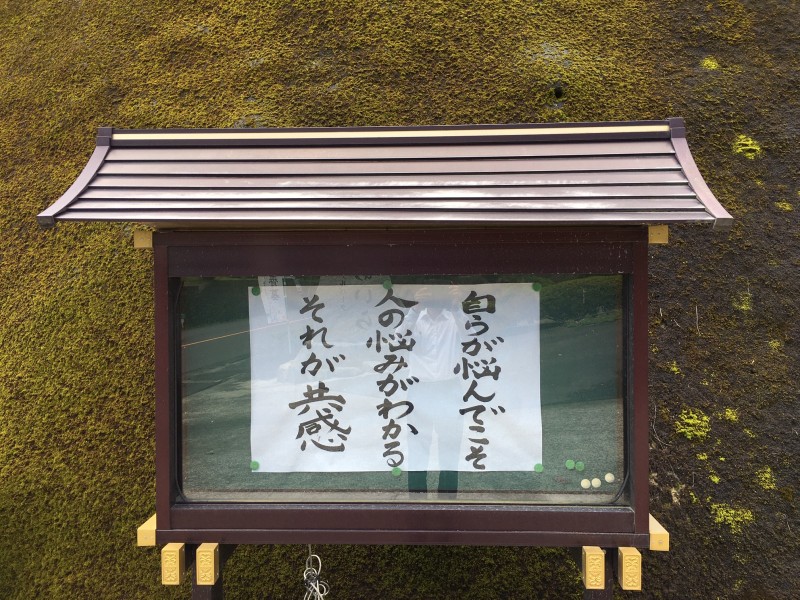 自らが悩んでこそ
人の悩みがわかる
それが共感